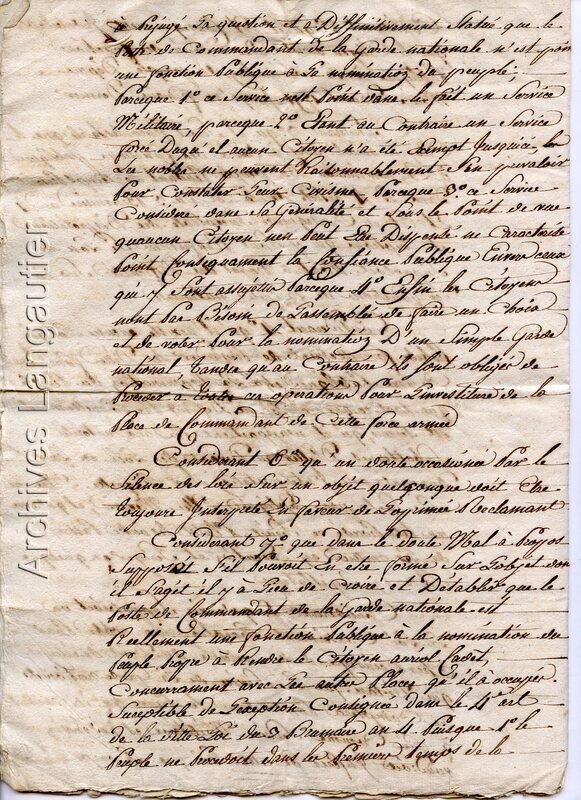 a Préjugé La question et a Deffinitivement Statué que le
Poste de Commandant de la Garde nationale n'est point
une fonction Publique à La nomination du peuple,
Parceque 1º ce Service nest Point dans le fait un Service
Militaire, parceque 2º Etant au Contraire un Service
forcé Duquel aucun Citoyen n'a été Exempt Jusquici, les
ne peuvent Raisonnablement Sen prevaloir
Pour Constater Leur Civisme, Parceque 3º ce Service
Considéré dans Sa Généralité et Sous le Point de vue
quaucun Citoyen nen Peut Etre Dispensé ne Caracterise
Point Consequament la Confiance Publique Envers ceux
qui y Sont assujetis Parceque 4º Enfin les Citoyens
nont Pas Besoin de Sassembler de faire un Choix
et de voter Pour la nomination D'un Simple Garde
national, Tandis qu'au Contraire ils Sont obligés de
Proceder à Toutes ces operations Pour Linvestiture de la
Place de Commandant de Cette force armée
Considerant 6º qu'un doute occasionné Par le
Silence des loix Sur un objet quelconque doit Etre
Toujours Interpreté En faveur de Lopprimé Reclamant
Considerant 7º que dans le doute Mal à Propos
Supposet Sil Pouvoit En etre formé Sur Lobjet dont
il Sagit il y à Lieu de Croire et Détablir que le
Poste de Commandant de la Garde nationale est
Réellement une fonction Publique à la nomination du
Peuple Propre à Rendre le Citoyen auriol Cadet,
Concurrament avec Les autres Places qu'il à occupés
Suceptible de Lexception Consignée dans le 4e art
de la ditte Loi du 3 Brumaire an 4 Puisque 1º le
Peuple ne Procedoit dans les Premiers Temps de la
Archives Langautier